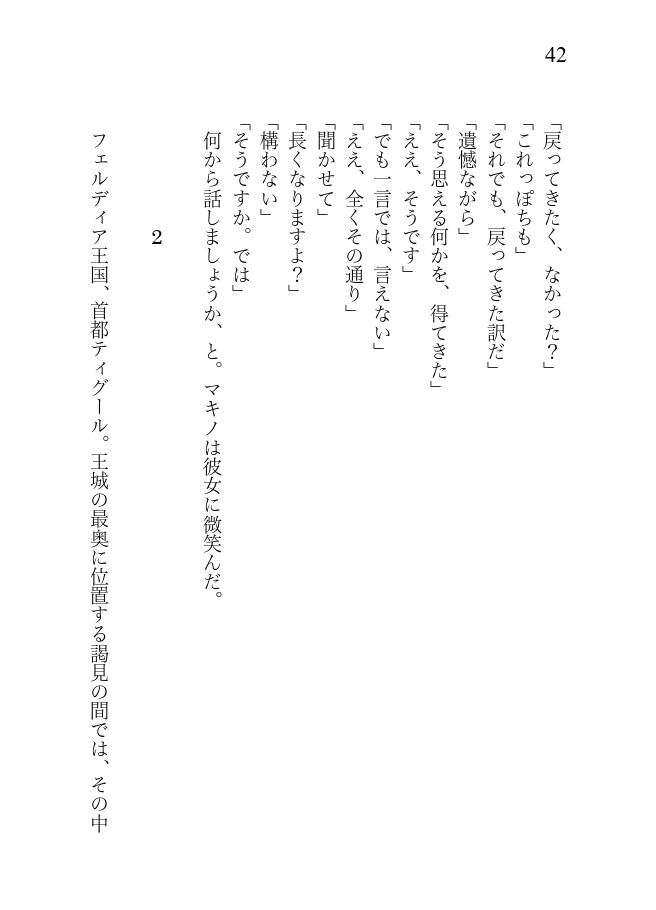 42
「戻ってきたく、なかった？」
「これっぽちも」
「それでも、戻ってきた訳だ」
「遺憾ながら」
「そう思える何かを、得てきた」
「ええ、そうです」
「でも一言では、言えない」
「ええ、全くその通り」
「聞かせて」
「長くなりますよ？」
「構わない」
「そうですか。では」
　何から話しましょうか、と。マキノは彼女に微笑んだ。
2
　フェルディア王国、首都ティグール。王城の最奥に位置する謁見の間では、その中